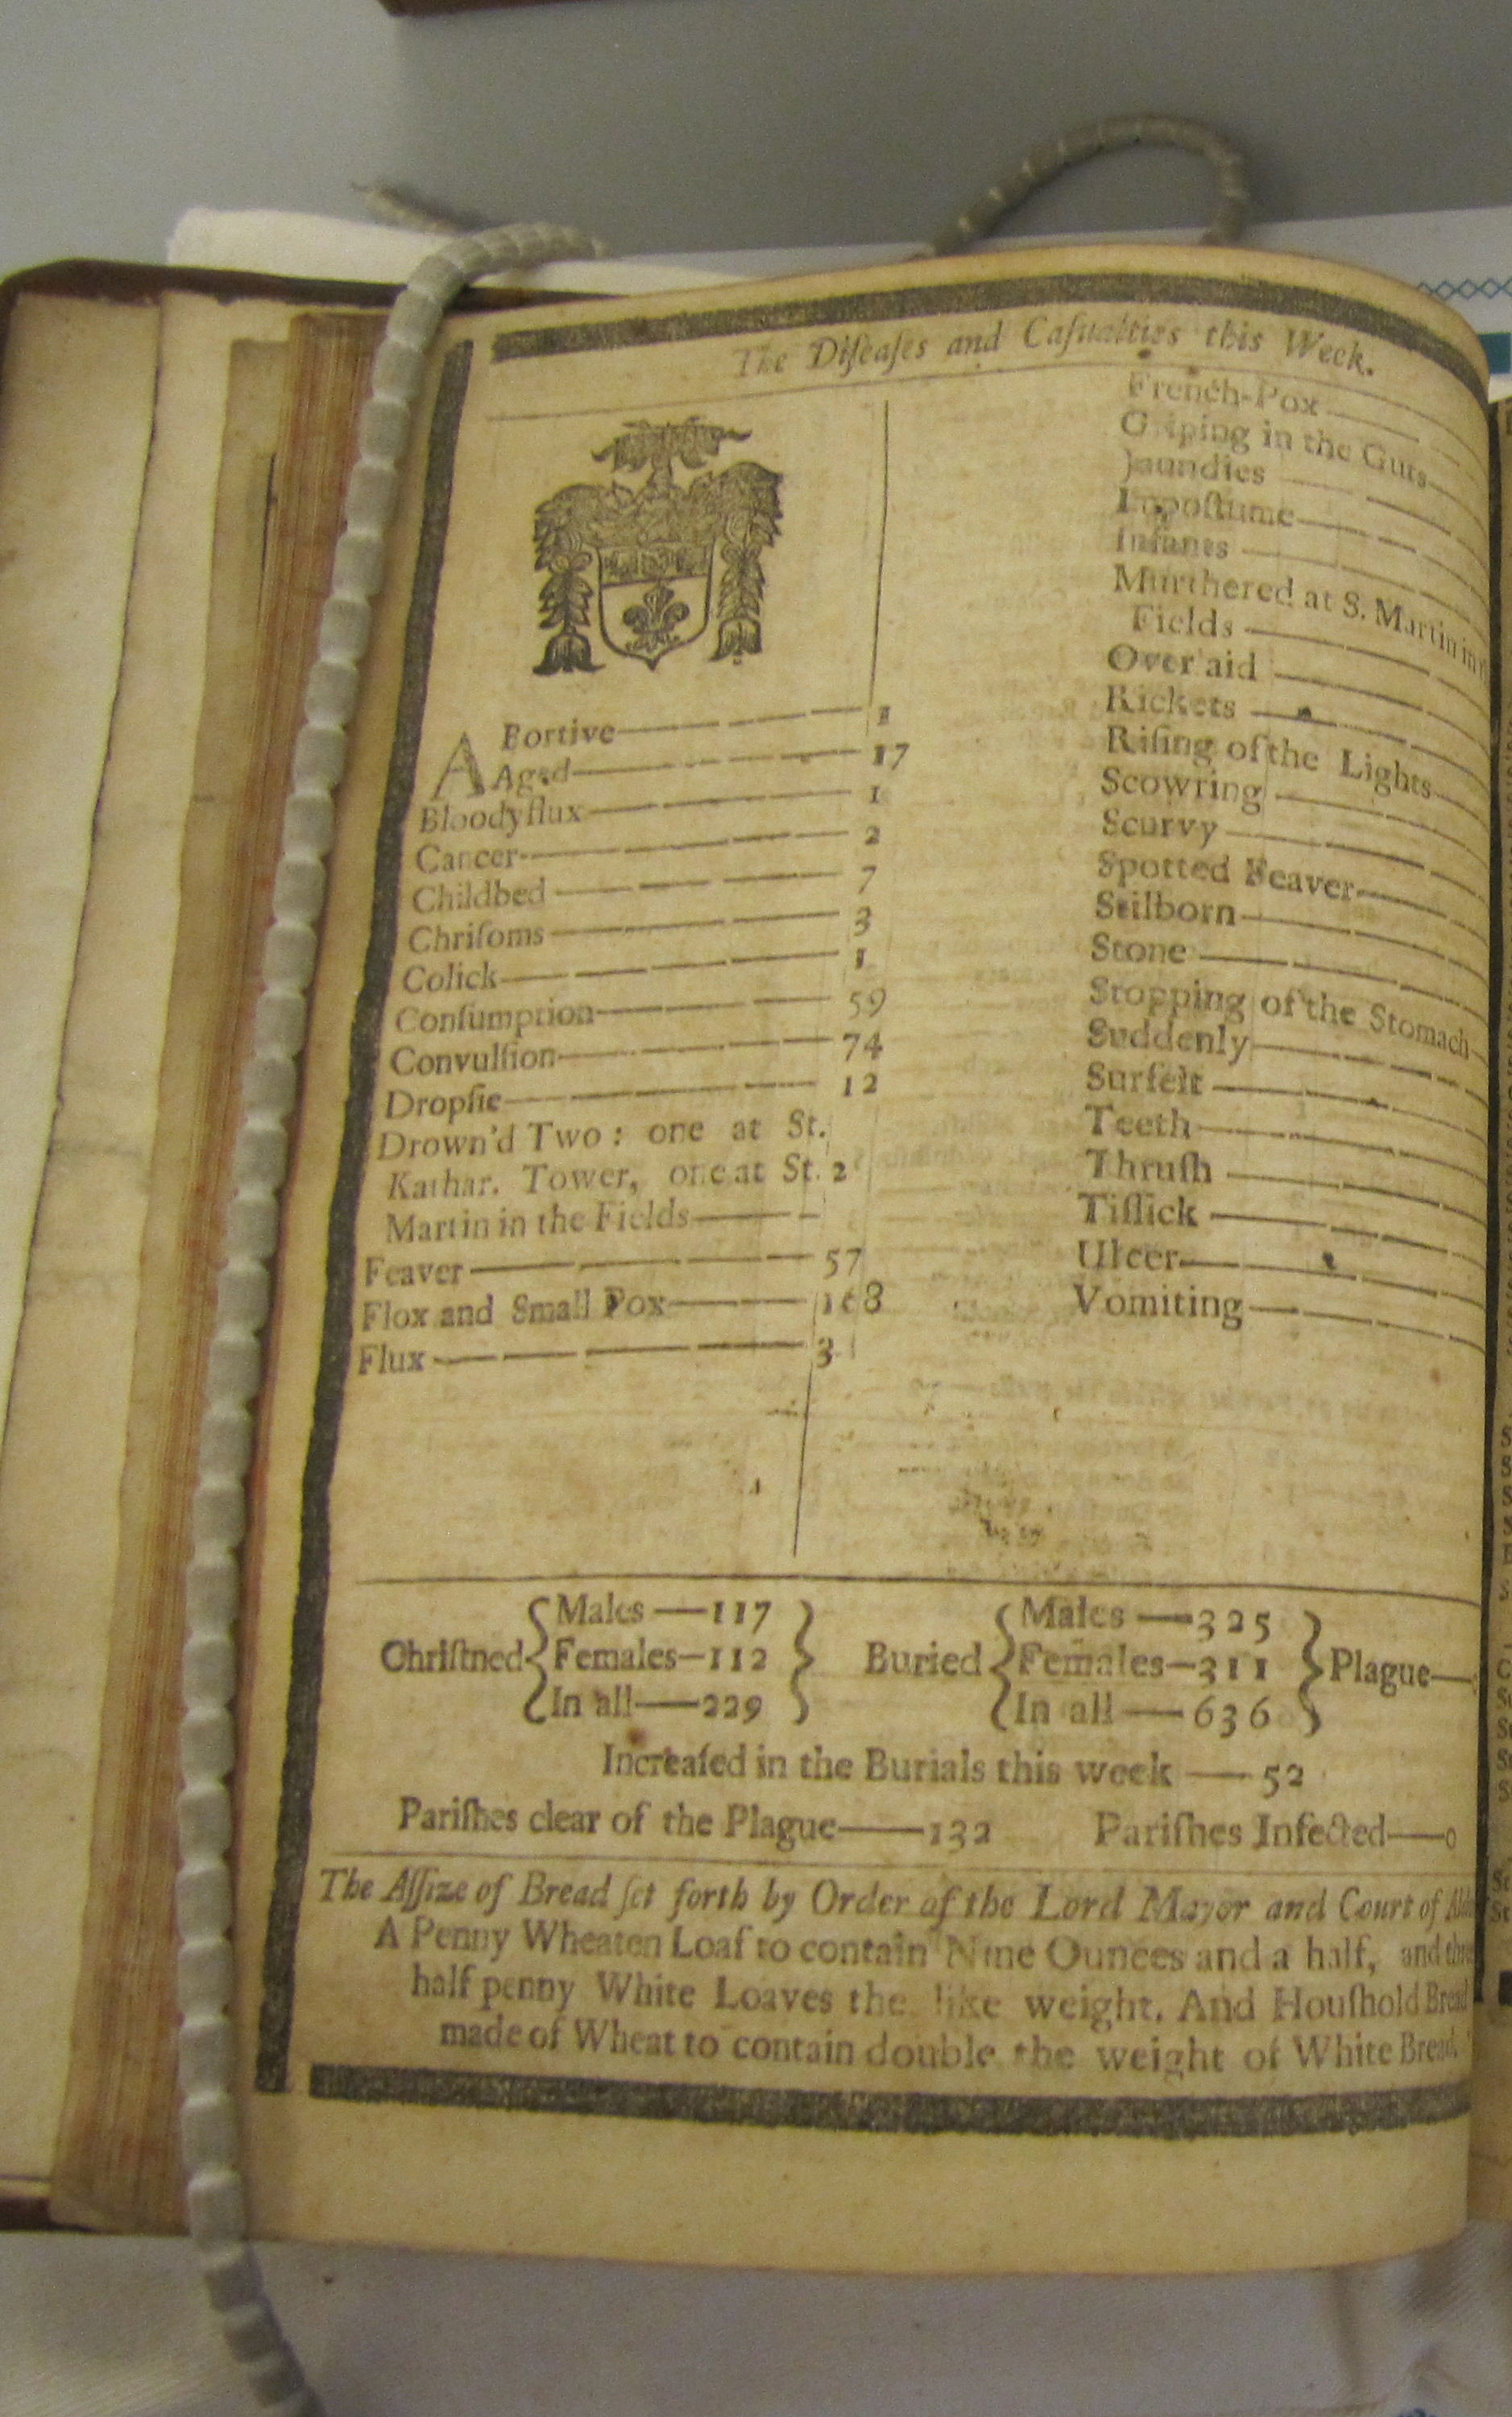 The Diſeaſes and Caſualties this Week.
A Bortive 1
Aged 17
Bloodyflux 1
Cancer 2
Childbed 7
Chriſoms 3
Colick 1
Conſumption 59
Convulſion 74
Dropſie 12
Drown'd Two: one at St.
Kathar. Tower, one at St. 2
Martin in the Fields
Feaver 57
Flox and Small Pox
Flux 3
French-Pox
Griping in the Guts
Jaundies
Impoſtume
Infants
Murthered at S. Martin in
Fields
Over aid
Rickets
Riſing of the Lights
Scowring
Scurvy
Spotted Feaver
Stilborn
Stone
Stopping of the Stomach
Suddenly
Surfeit
Teeth
Thruſh
Tiſſick
Ulcer
Vomiting
Chriſtned Males 117
Females 112
In all 229
Buried Males 325
Females 311
In all 636
Plague
Increaſed in the Burials this week 52
Pariſhes clear of the Plague 132 Pariſhes Infected 0
The Aſſize of Bread ſet forth by Order of the Lord Mayor and Court of
A Penny Wheaten Loaf to contain Nine Ounces and a half, and
half penny White Loaves the like weight. And Houſhold Bread
made of Wheat to contain double the weight of White Bread.